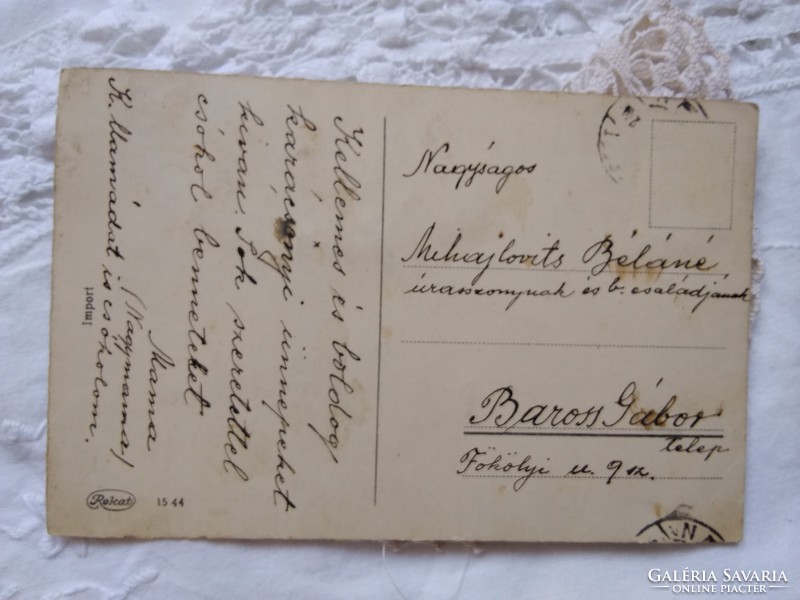 Kellemes és boldog
karácsonyi ünnepeket
kiván. Sok szeretettel
csókol benneteket
Mama
/Nagymama/
K. Mamádat is csókolom.
Import
Rekat 1544
Nagyságos
Mihajlovits Béláné
úrasszonynak és b. családjának
Baross Gábor
telep
Fökölyi u. 9 sz.
GALÉRIA SAVARIA
ONLINE PIACTÉR